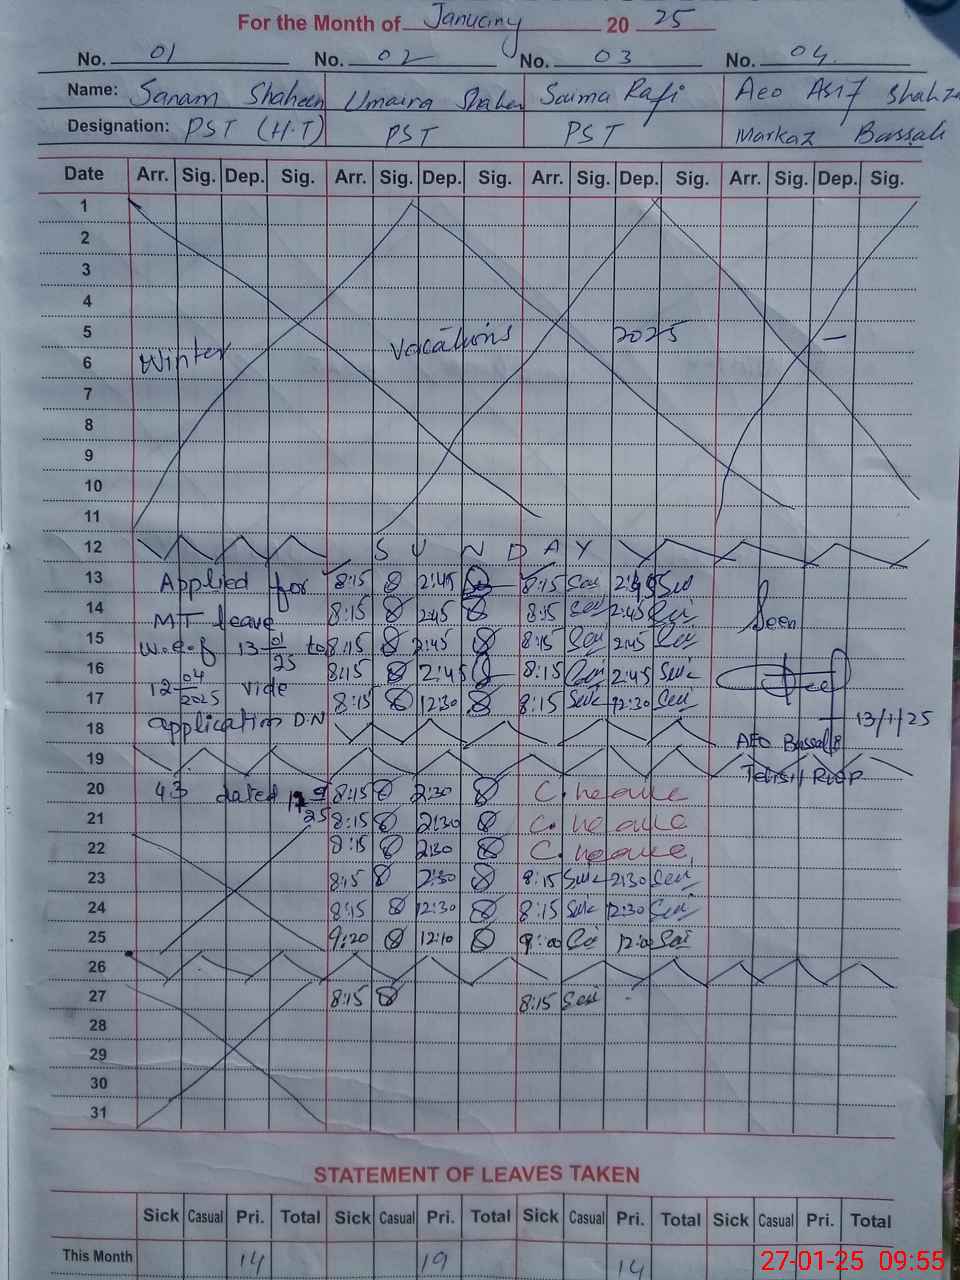 For the Month of January 20 25
No. 01 No. 02 No. 03 No. 04
Name: Sanam Shaheen Umaira Shahe Saima Rafi Aeo Asif Shahza
Designation: PST (H.T) PST PST Markaz Bassali
Date Arr. Sig. Dep. Sig. Arr. Sig. Dep. Sig. Arr. Sig. Dep. Sig. Arr. Sig. Dep. Sig.
1
2
3
4
5 Vacations 2025 —
6 Winter
7
8
9
10
11
12 SUNDAY
13 Applied for 8:15 2:45 8:15 2:45
14 MT leave 8:15 2:45 8:15 2:45 Seen
15 w.e.f 13 01/25 to 8:15 2:45 8:15 2:45
16 12 04/2025 vide 8:15 2:45 8:15 2:45
17 8:15 12:30 8:15 12:30 13/1/25
18 application D.N AEO Bassali
19 Tehsil Rwp
20 43 dated 8:15 2:30 C. leave
21 8:15 2:30 C. leave
22 8:15 2:30 C. leave
23 8:15 2:30 8:15 2:30
24 8:15 12:30 8:15 12:30
25 9:20 12:10 9:00 12:00
26
27 8:15 8:15
28
29
30
31
STATEMENT OF LEAVES TAKEN
Sick Casual Pri. Total Sick Casual Pri. Total Sick Casual Pri. Total Sick Casual Pri. Total
This Month 14 19 14
27-01-25 09:55